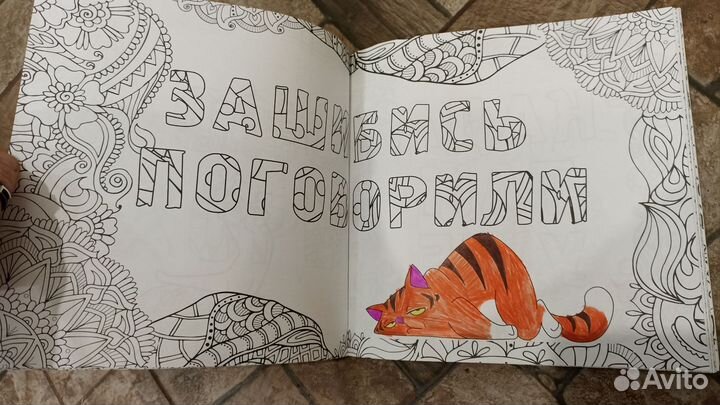 ЗАШИБИСЬ
ПОГОВОРИЛИ
Avito